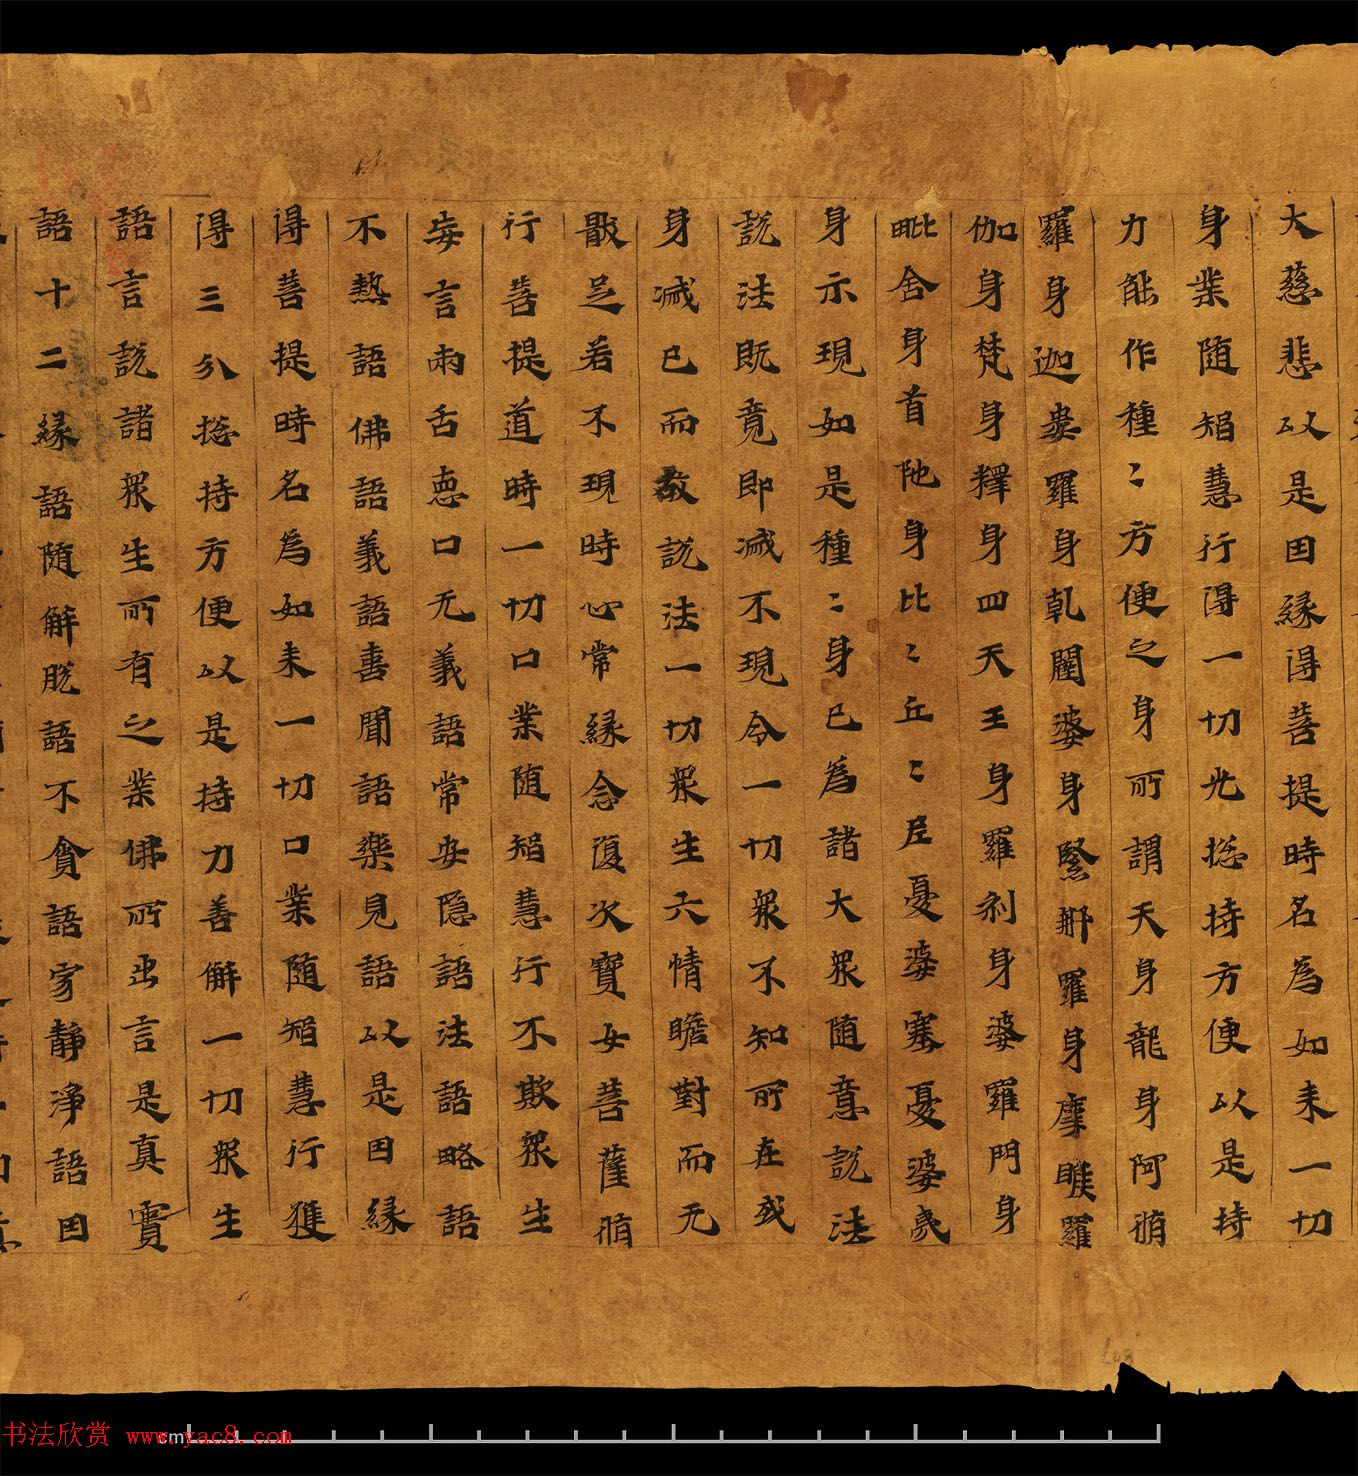 大慈悲以是因緣得菩提時名為如来一切
身業随智慧行得一切光捴持方便以是持
力能作種〻方便之身所謂天身龍身阿脩
羅身迦婁羅身乹闥婆身緊那羅身摩睺羅
伽身梵身釋身四天王身羅刹身婆羅門身
毗舍身首陁身比〻丘〻尼憂婆塞憂婆夷
身示現如是種〻身已為諸大衆随意説法
説法既竟即滅不現令一切衆不知所在或
身滅已而教説法一切衆生六情瞻對而无
猒足若不現時心常緣念復次寶女菩薩脩
行菩提道時一切口業随智慧行不欺衆生
妄言兩舌惡口无義語常安隐語法語略語
不熱語佛語義語善聞語樂見語以是因緣
得菩提時名為如来一切口業随智慧行獲
得三分捴持方便以是持力善解一切衆生
語言説諸衆生所有之業佛所出言是真實
語十二緣語随解脱語不貪語寂静淨語因